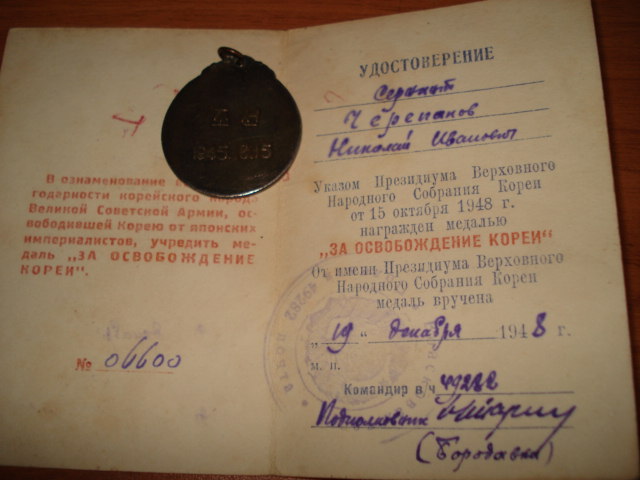 1945.8.15
В ознаменование
годарности корейского народа
Великой Советской Армии, ос-
вободившей Корею от японских
империалистов, учредить ме-
даль „ЗА ОСВОБОЖДЕНИЕ
КОРЕИ".
№ 06600
УДОСТОВЕРЕНИЕ
Сержант
Черепанов
Николай Иванович
Указом Президиума Верховного
Народного Собрания Кореи
от 15 октября 1948 г.
награжден медалью
„ЗА ОСВОБОЖДЕНИЕ КОРЕИ"
От имени Президиума Верховного
Народного Собрания Кореи
медаль вручена
„19" декабря 1948 г.
м. п.
Командир в/ч 49282
Подполковник
(Бородавка)